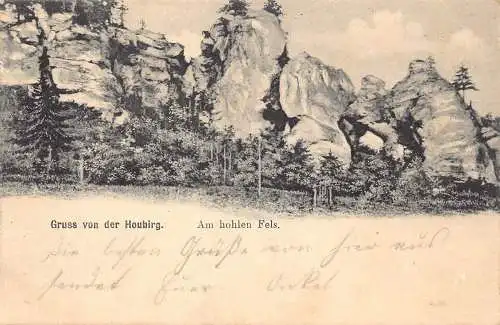 Gruss von der Houbirg. Am hohlen Fels.
Die besten Grüße von hier aus
sendet Euer Onkel